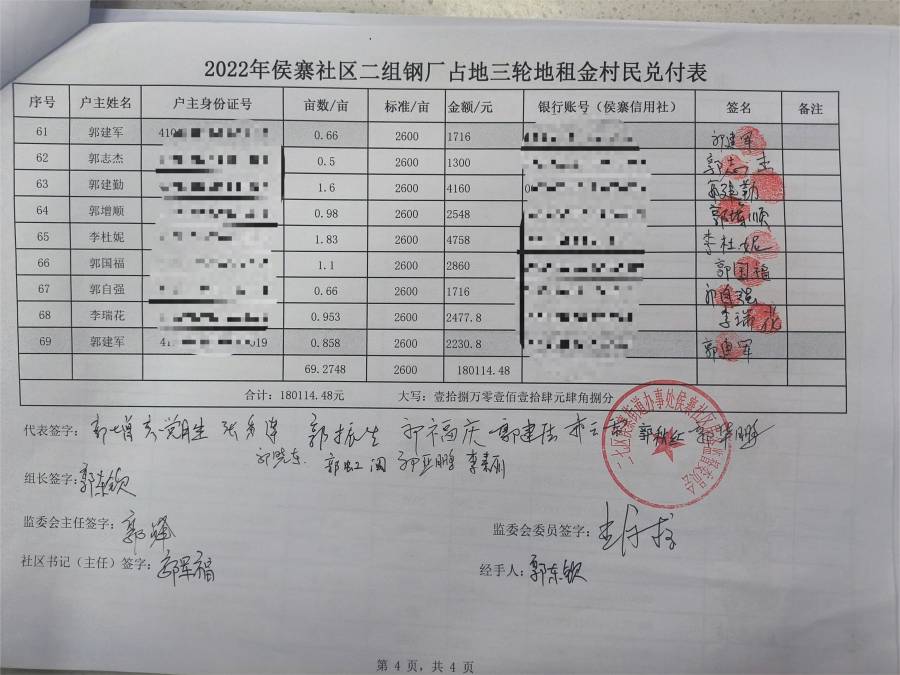 2022年侯寨社区二组钢厂占地三轮地租金村民兑付表
序号 户主姓名 户主身份证号 亩数/亩 标准/亩 金额/元 银行账号（侯寨信用社） 签名 备注
61 郭建军 410 0.66 2600 1716 郭建军
62 郭志杰 0.5 2600 1300 郭志杰
63 郭建勤 1.6 2600 4160 郭建勤
64 郭增顺 0.98 2600 2548 郭增顺
65 李杜妮 1.83 2600 4758 李杜妮
66 郭国福 1.1 2600 2860 郭国福
67 郭自强 0.66 2600 1716 郭自强
68 李瑞花 0.953 2600 2477.8 李瑞花
69 郭建军 41 019 0.858 2600 2230.8 郭建军
69.2748 2600 180114.48
合计：180114.48元 大写：壹拾捌万零壹佰壹拾肆元肆角捌分
代表签字： 郭振生 郭福庆 郭建法
郭亚鹏
组长签字：郭东钦
监委会主任签字： 监委会委员签字：
社区书记（主任）签字：郭军福 经手人：郭东钦
第 4 页，共 4 页